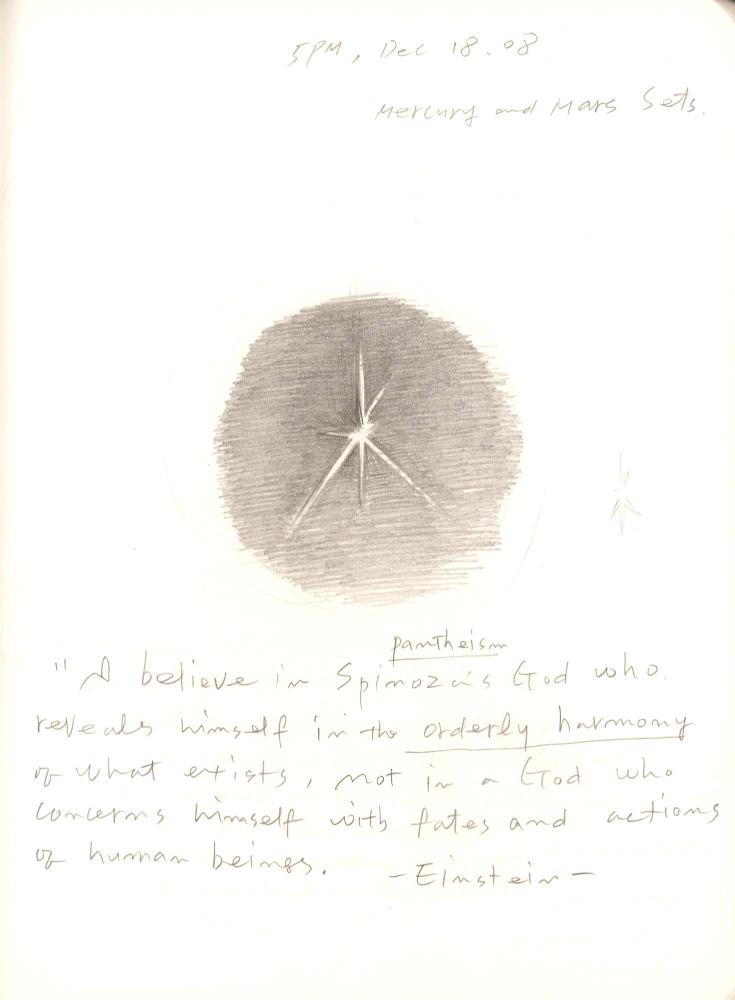 5PM, Dec 18. 08
Mercury and Mars Sets.
pantheism
"I believe in Spinoza's God who
reveals himself in the orderly harmony
of what exists, not in a God who
concerns himself with fates and actions
of human beings. -Einstein-